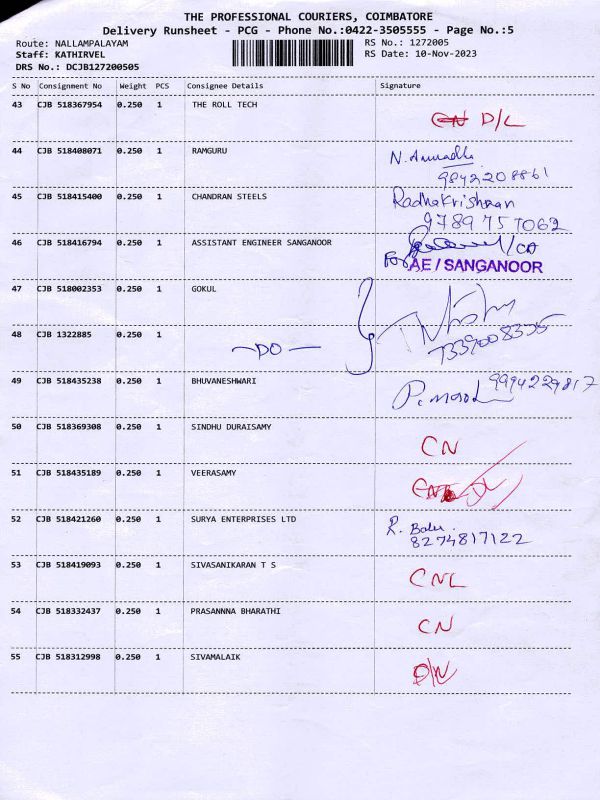 THE PROFESSIONAL COURIERS, COIMBATORE
Delivery Runsheet - PCG - Phone No.:0422-3505555 - Page No.:5
Route: NALLAMPALAYAM RS No.: 1272005
Staff: KATHIRVEL RS Date: 10-Nov-2023
DRS No.: DCJB127200505
S No Consignment No Weight PCS Consignee Details Signature
43 CJB 518367954 0.250 1 THE ROLL TECH D/L
44 CJB 518408071 0.250 1 RAMGURU N. Anuradha
9842208861
45 CJB 518415400 0.250 1 CHANDRAN STEELS Radhakrishnan
9789757062
46 CJB 518416794 0.250 1 ASSISTANT ENGINEER SANGANOOR
For AE / SANGANOOR
47 CJB 518002353 0.250 1 GOKUL
48 CJB 1322885 0.250 1 -DO-
49 CJB 518435238 0.250 1 BHUVANESHWARI 9994229817
50 CJB 518369308 0.250 1 SINDHU DURAISAMY CN
51 CJB 518435189 0.250 1 VEERASAMY
52 CJB 518421260 0.250 1 SURYA ENTERPRISES LTD R. Babu.
8274817122
53 CJB 518419093 0.250 1 SIVASANIKARAN T S CNL
54 CJB 518332437 0.250 1 PRASANNNA BHARATHI CN
55 CJB 518312998 0.250 1 SIVAMALAIK